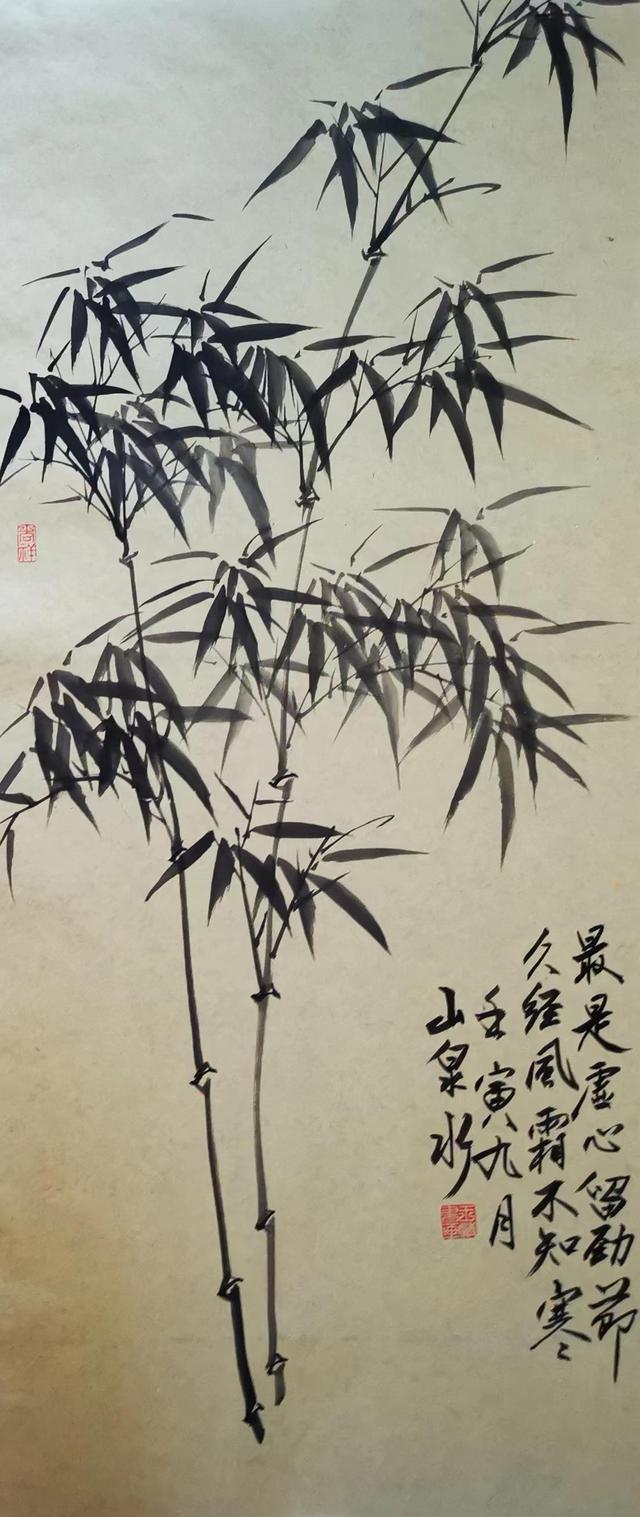 最是虚心留劲节
久经风霜不知寒
壬寅八九月
山泉水
吉祥